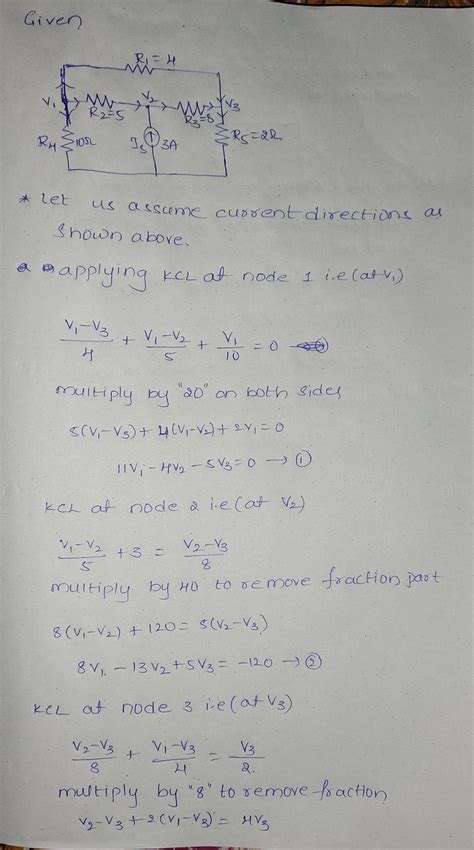 Given
R1 = 4
V1
R2=5
V2
R3=8
V3
R4
10Ω
Is
3A
R5=2Ω
* Let us assume current directions as
shown above.
applying KCL at node 1 i.e (at V1)
V1-V3/4 + V1-V2/5 + V1/10 = 0
multiply by "20" on both sides
5(V1-V3) + 4(V1-V2) + 2V1 = 0
11V1 - 4V2 - 5V3 = 0 → ①
KCL at node 2 i.e (at V2)
V1-V2/5 + 3 = V2-V3/8
multiply by 40 to remove fraction part
8(V1-V2) + 120 = 5(V2-V3)
8V1 - 13V2 + 5V3 = -120 → ②
KCL at node 3 i.e (at V3)
V2-V3/8 + V1-V3/4 = V3/2
multiply by "8" to remove fraction
V2-V3 + 2(V1-V3) = 4V3